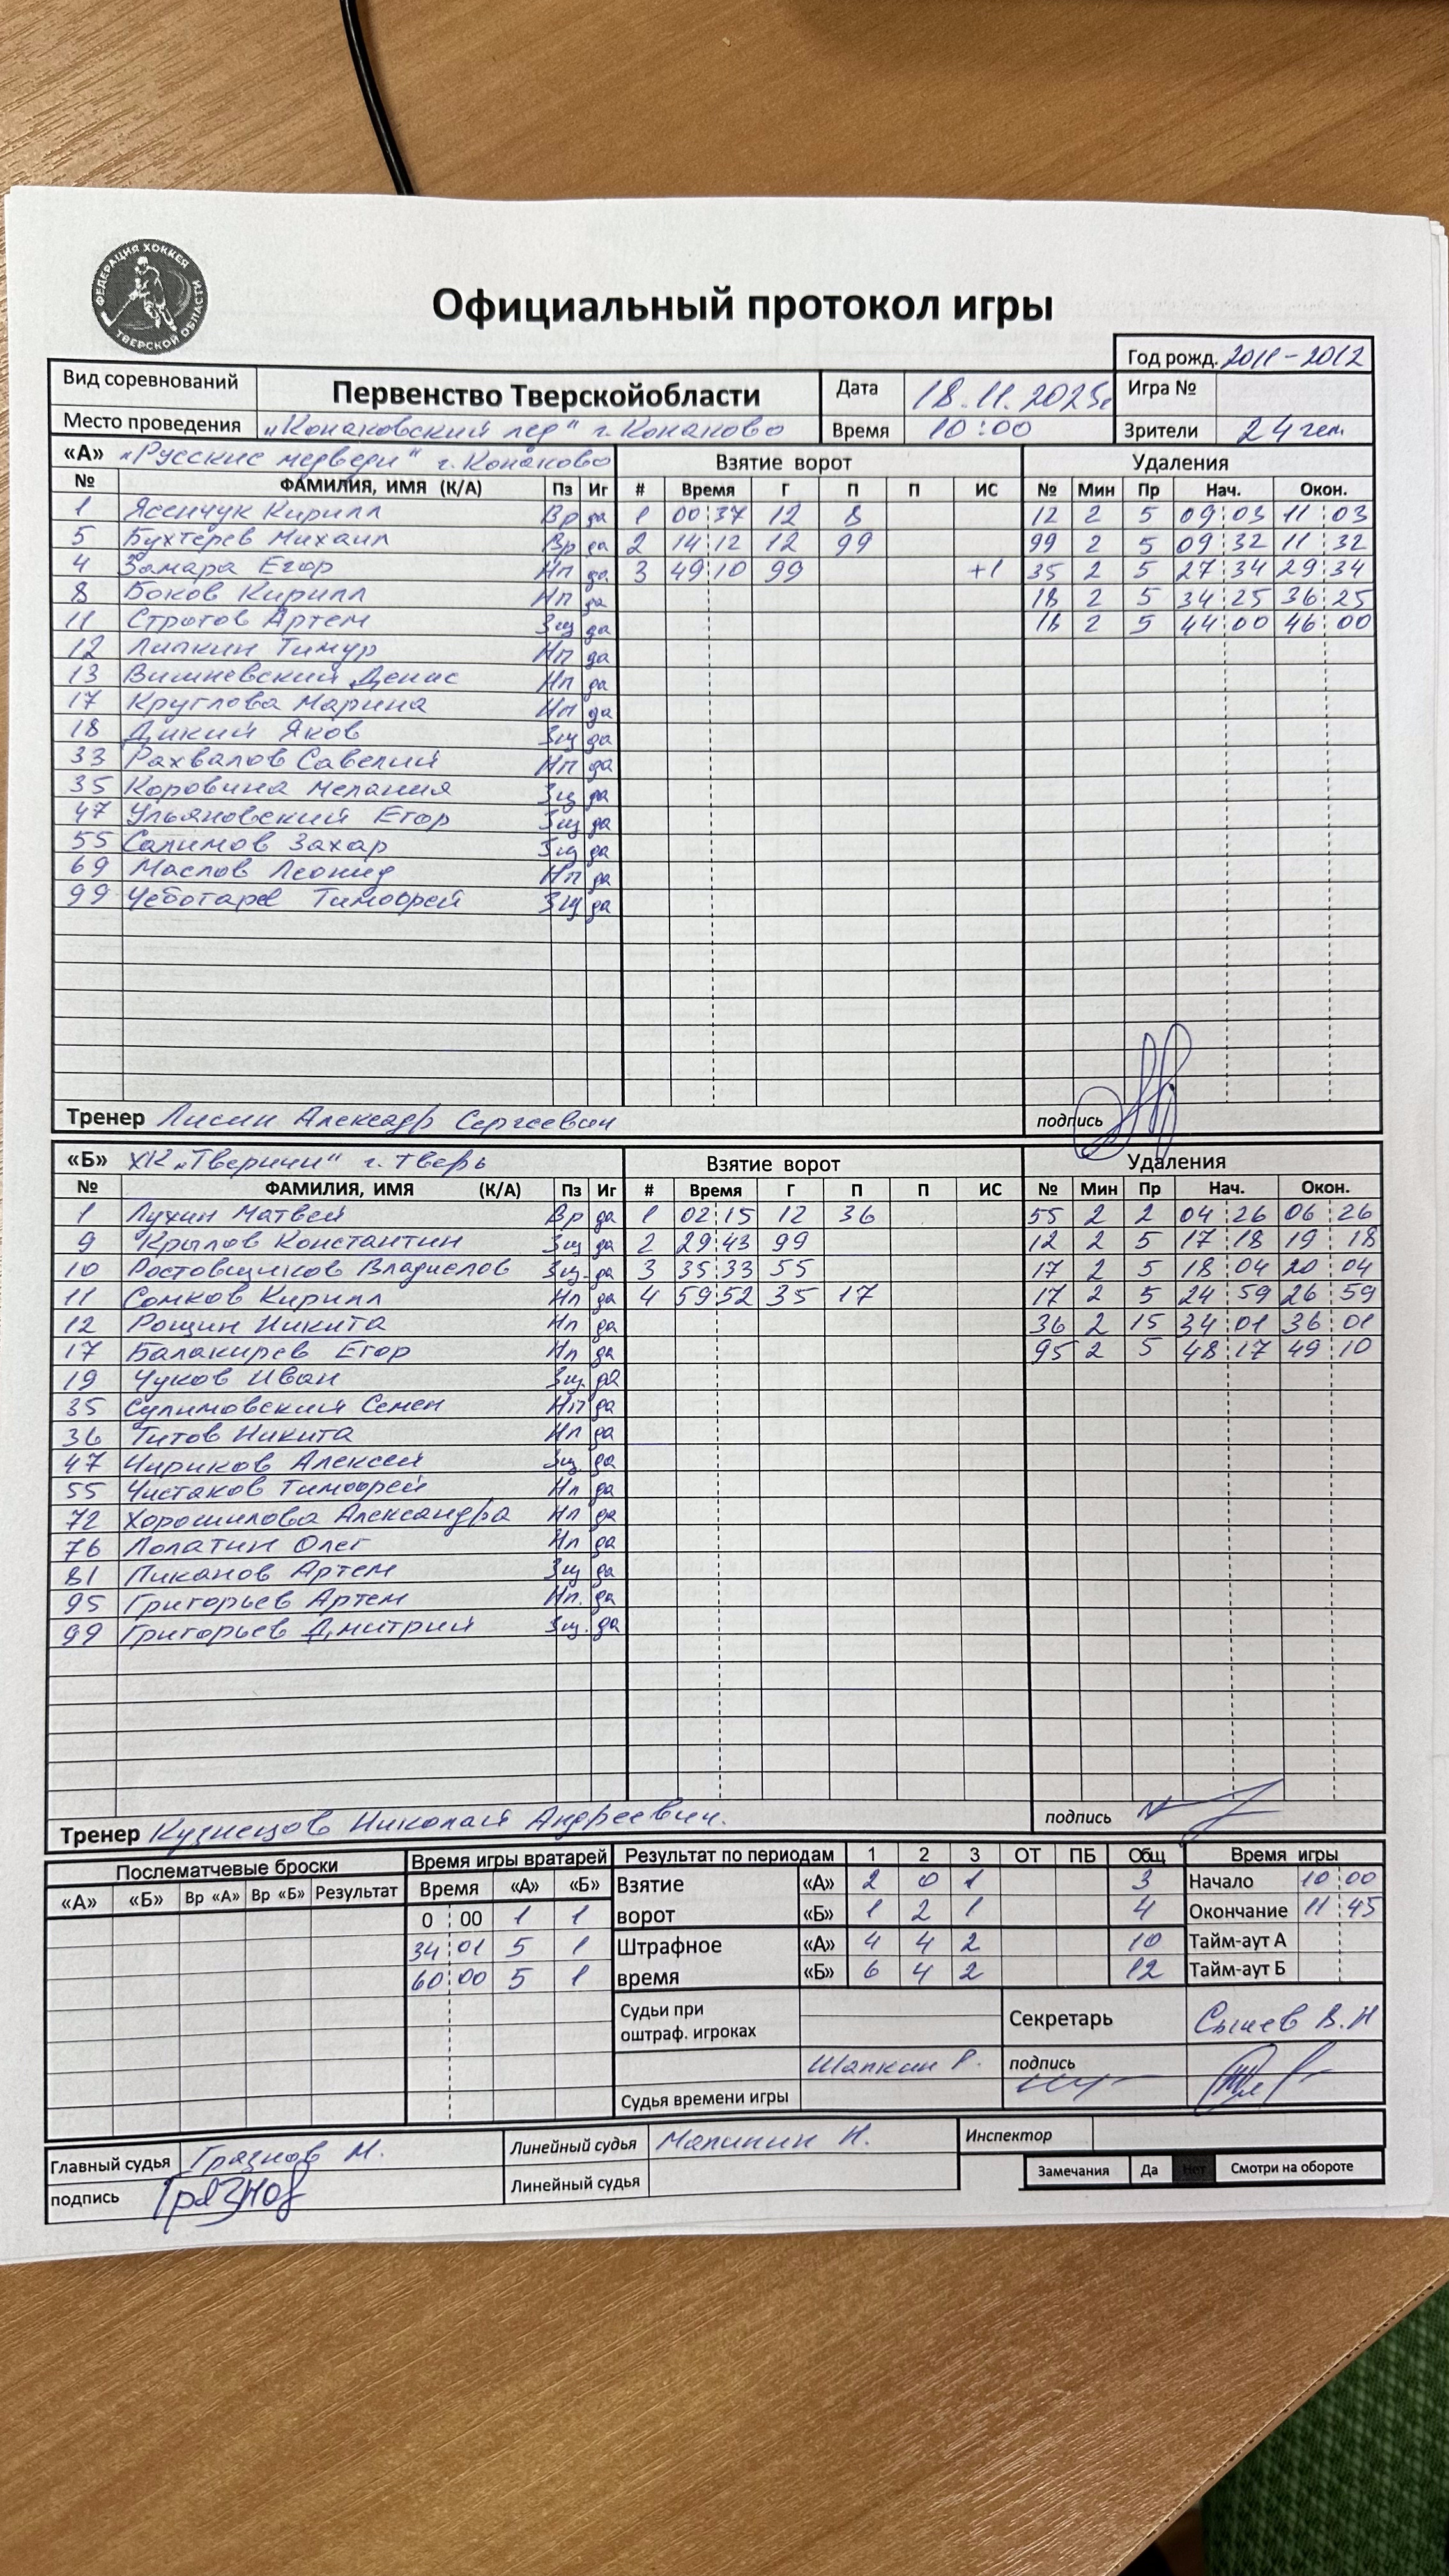 ФЕДЕРАЦИЯ ХОККЕЯ
ТВЕРСКОЙ ОБЛАСТИ
Официальный протокол игры
Год рожд. 2011-2012
Вид соревнований Первенство Тверскойобласти Дата 18.11.2025г Игра №
Место проведения "Конаковский лед" г. Конаково Время 10:00 Зрители 24 чел
«А» "Русские медведи" г. Конаково Взятие ворот Удаления
№ ФАМИЛИЯ, ИМЯ (К/А) Пз Иг # Время Г П П ИС № Мин Пр Нач. Окон.
1 Ясенчук Кирилл Вр да 1 00:37 12 8 12 2 5 09:03 11:03
5 Бухтерев Михаил Вр да 2 14:12 12 99 99 2 5 09:32 11:32
4 Замара Егор Нп да 3 49:10 99 +1 35 2 5 27:34 29:34
8 Боков Кирилл Нп да 18 2 5 34:25 36:25
11 Стротов Артем Зщ да 18 2 5 44:00 46:00
12 Липкин Тимур Нп да
13 Вишневский Денис Нп да
17 Круглова Марина Нп да
18 Дикий Яков Зщ да
33 Рахвалов Савелий Нп да
35 Коровина Мелания Зщ да
47 Ульяновский Егор Зщ да
55 Салимов Захар Зщ да
69 Маслов Леонид Нп да
99 Чеботарев Тимофей Зщ да
Тренер Лисин Александр Сергеевич подпись
«Б» ХК "Тверичи" г. Тверь Взятие ворот Удаления
№ ФАМИЛИЯ, ИМЯ (К/А) Пз Иг # Время Г П П ИС № Мин Пр Нач. Окон.
1 Лухин Матвей Вр да 1 02:15 12 36 55 2 2 04:26 06:26
9 Крылов Константин Зщ да 2 29:43 99 12 2 5 17:18 19:18
10 Ростовщиков Владислов Зщ. да 3 35:33 55 17 2 5 18:04 20:04
11 Сомков Кирилл Нп да 4 59:52 35 17 17 2 5 24:59 26:59
12 Рощин Никита Нп да 36 2 15 34:01 36:01
17 Балакирев Егор Нп да 95 2 5 48:17 49:10
19 Чуков Иван Зщ. да
35 Сулимовский Семен Нп да
36 Титов Никита Нп да
47 Чириков Алексей Зщ да
55 Чистаков Тимофей Нп да
72 Хорошилова Александра Нп да
76 Лопатин Олег Нп да
81 Пиканов Артем Зщ да
95 Григорьев Артем Нп. да
99 Григорьев Дмитрий Зщ. да
Тренер Кузнецов Николай Андреевич. подпись
Послематчевые броски Время игры вратарей Результат по периодам 1 2 3 ОТ ПБ Общ Время игры
«А» «Б» Вр «А» Вр «Б» Результат Время «А» «Б» Взятие ворот «А» 2 0 1 3 Начало 10:00
0 00 1 1 «Б» 1 2 1 4 Окончание 11:45
34:01 5 1 Штрафное время «А» 4 4 2 10 Тайм-аут А
60:00 5 1 «Б» 6 4 2 12 Тайм-аут Б
Судьи при оштраф. игроках Секретарь Сычев В.Н
Шапкин Р. подпись
Судья времени игры
Главный судья Грязнов М. Линейный судья Малинин Н. Инспектор
подпись Грязнов Линейный судья Замечания Да Нет Смотри на обороте